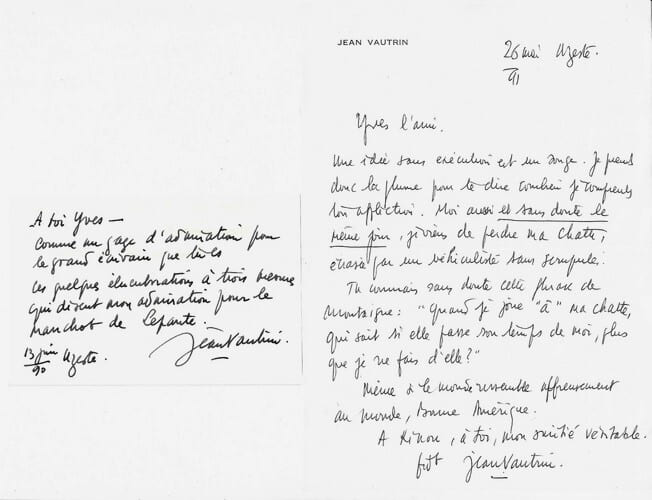 A toi Yves —
comme un gage d'admiration pour
le grand écrivain que tu es
ces quelques élucubrations à trois
qui disent mon admiration pour le
manchot de Lepante.
13 juin
90
Uzeste.
Jean Vautrin.
JEAN VAUTRIN
26 mai Uzeste.
91
Yves l'ami.
Une idée sans exécution est un songe. Je prends
donc la plume pour te dire combien je comprends
ton affliction. Moi aussi et sans doute le
même jour, je viens de perdre ma chatte,
écrasée par un véhiculiste sans scrupule.
Tu connais sans doute cette phrase de
Montaigne : "Quand je joue "à" ma chatte,
qui sait si elle passe son temps de moi, plus
que je ne fais d'elle ?"
Même si le monde ressemble affreusement
au monde, Bonne Amérique.
A Ninou, à toi, mon amitié véritable.
Jean Vautrin.